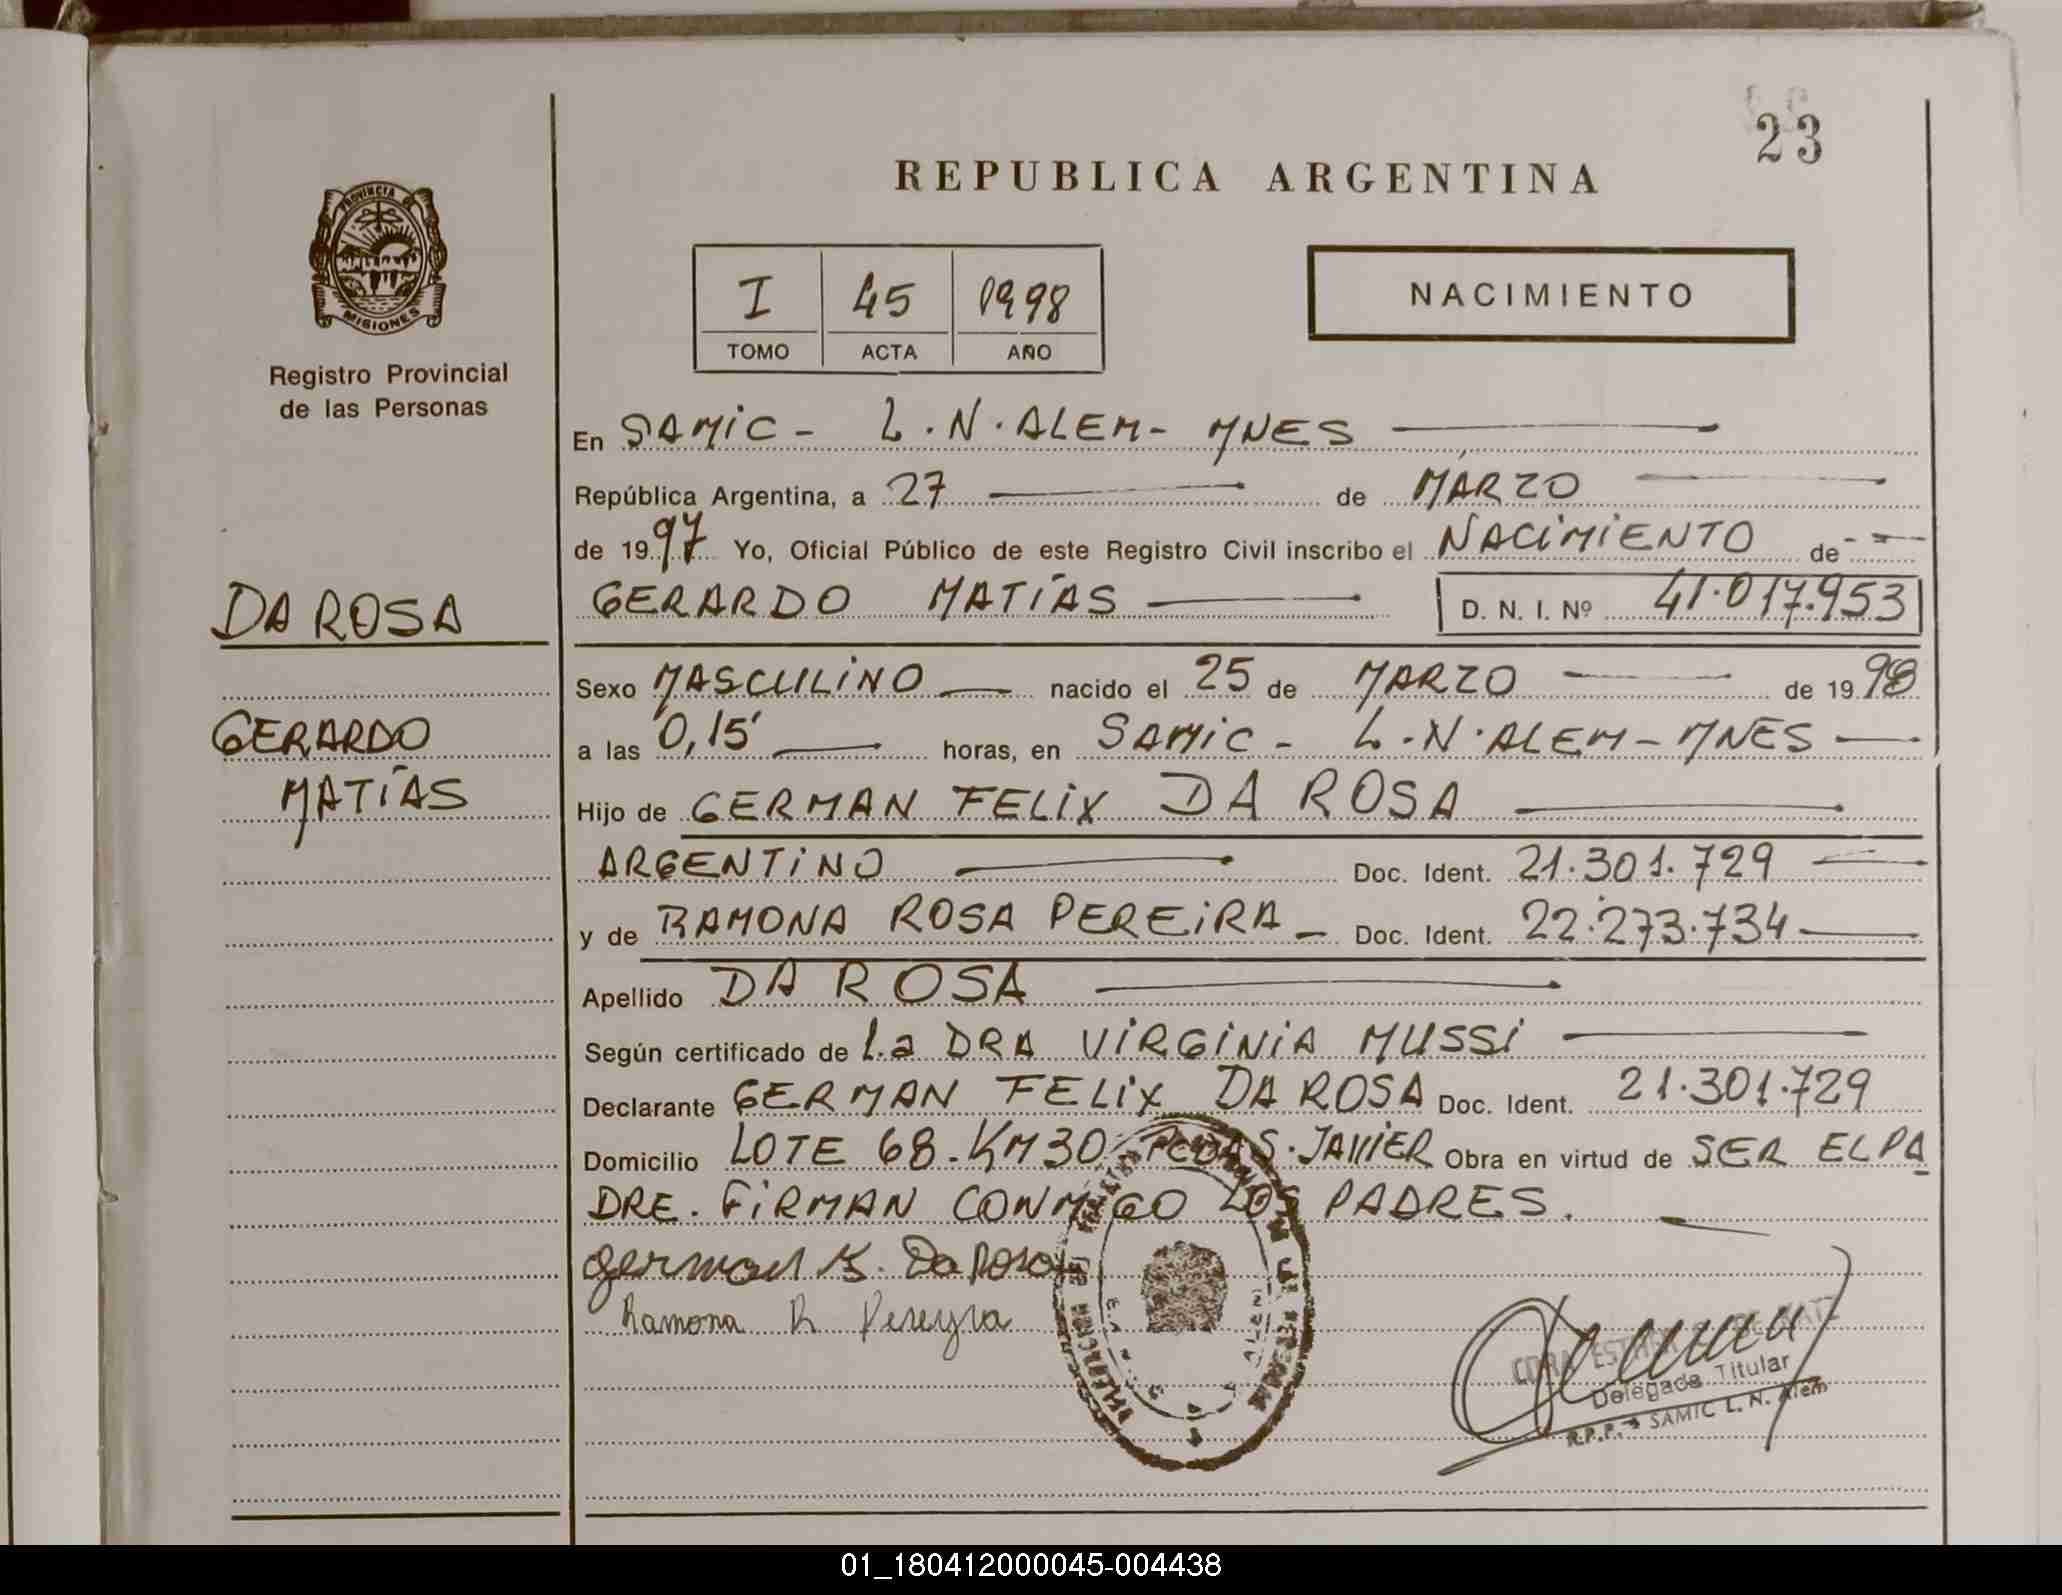 23
REPUBLICA ARGENTINA
PROVINCIA DE
MISIONES
Registro Provincial
de las Personas
I 45 1998
TOMO ACTA AÑO
NACIMIENTO
En SAMIC - L.N. ALEM - MNES
República Argentina, a 27 de MARZO
de 1997 Yo, Oficial Público de este Registro Civil inscribo el NACIMIENTO de
DA ROSA
GERARDO MATÍAS D. N. I. Nº 41.017.953
Sexo MASCULINO nacido el 25 de MARZO de 1998
GERARDO
a las 0,15' horas, en SAMIC - L.N. ALEM - MNES
MATÍAS
Hijo de GERMAN FELIX DA ROSA
ARGENTINO Doc. Ident. 21.301.729
y de RAMONA ROSA PEREIRA Doc. Ident. 22.273.734
Apellido DA ROSA
Según certificado de La DRA VIRGINIA MUSSI
Declarante GERMAN FELIX DA ROSA Doc. Ident. 21.301.729
Domicilio LOTE 68 - KM 30 S. JAVIER Obra en virtud de SER EL PA
DRE. FIRMAN CONMIGO LOS PADRES.
german Da Rosa
Ramona R Pereyra
Delegada Titular
R.P.P. SAMIC L. N. Alem
01_180412000045-004438